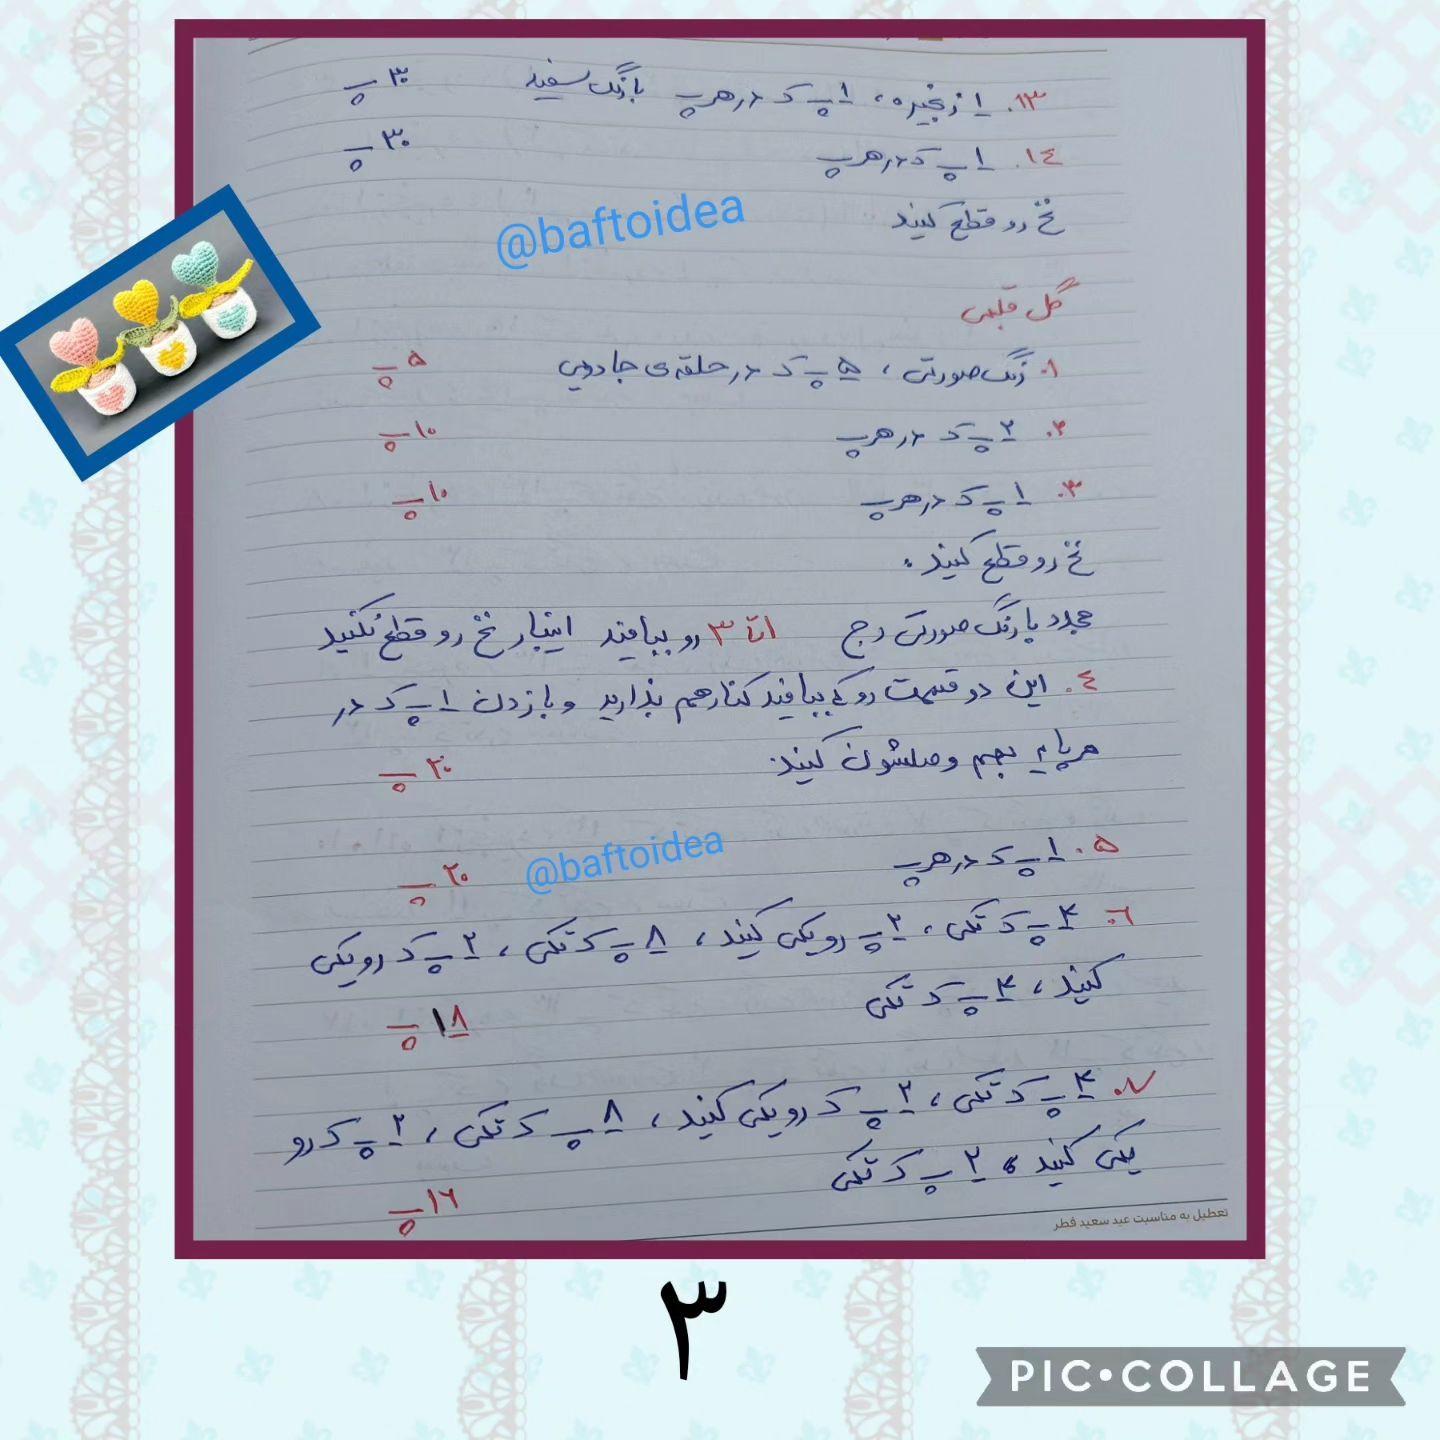 ۱۳. ۱ زنجیره، ۱ پ ک در هر پ با رنگ سفید ۳۰ پ
۱٤. ۱ پ ک در هر پ ۳۰ پ
نخ رو قطع کنید
@baftoidea
گل قلبی
۱. رنگ صورتی، ۵ پ ک در حلقه‌ی جادویی ۵ پ
۲. ۲ پ ک در هر پ ۱۰ پ
۳. ۱ پ ک در هر پ ۱۰ پ
نخ رو قطع کنید.
مجدد با رنگ صورتی رج ۱ تا ۳ رو ببافید اینبار نخ رو قطع نکنید
٤. این دو قسمت رو که ببافید کنار هم بذارید و با زدن ۱ پ ک در
هر پایه بهم وصلشون کنید. ۲۰ پ
@baftoidea
۵. ۱ پ ک در هر پ ۲۰ پ
٦. ۴ پ ک تکی، ۲ پ رو یکی کنید، ۸ پ ک تکی، ۲ پ ک رو یکی
کنید، ۴ پ ک تکی ۱۸ پ
۷. ۴ پ ک تکی، ۲ پ ک رو یکی کنید، ۸ پ ک تکی، ۲ پ ک رو
یکی کنید، ۲ پ ک تکی ۱٦ پ
تعطیل به مناسبت عید سعید فطر
۳
PIC•COLLAGE